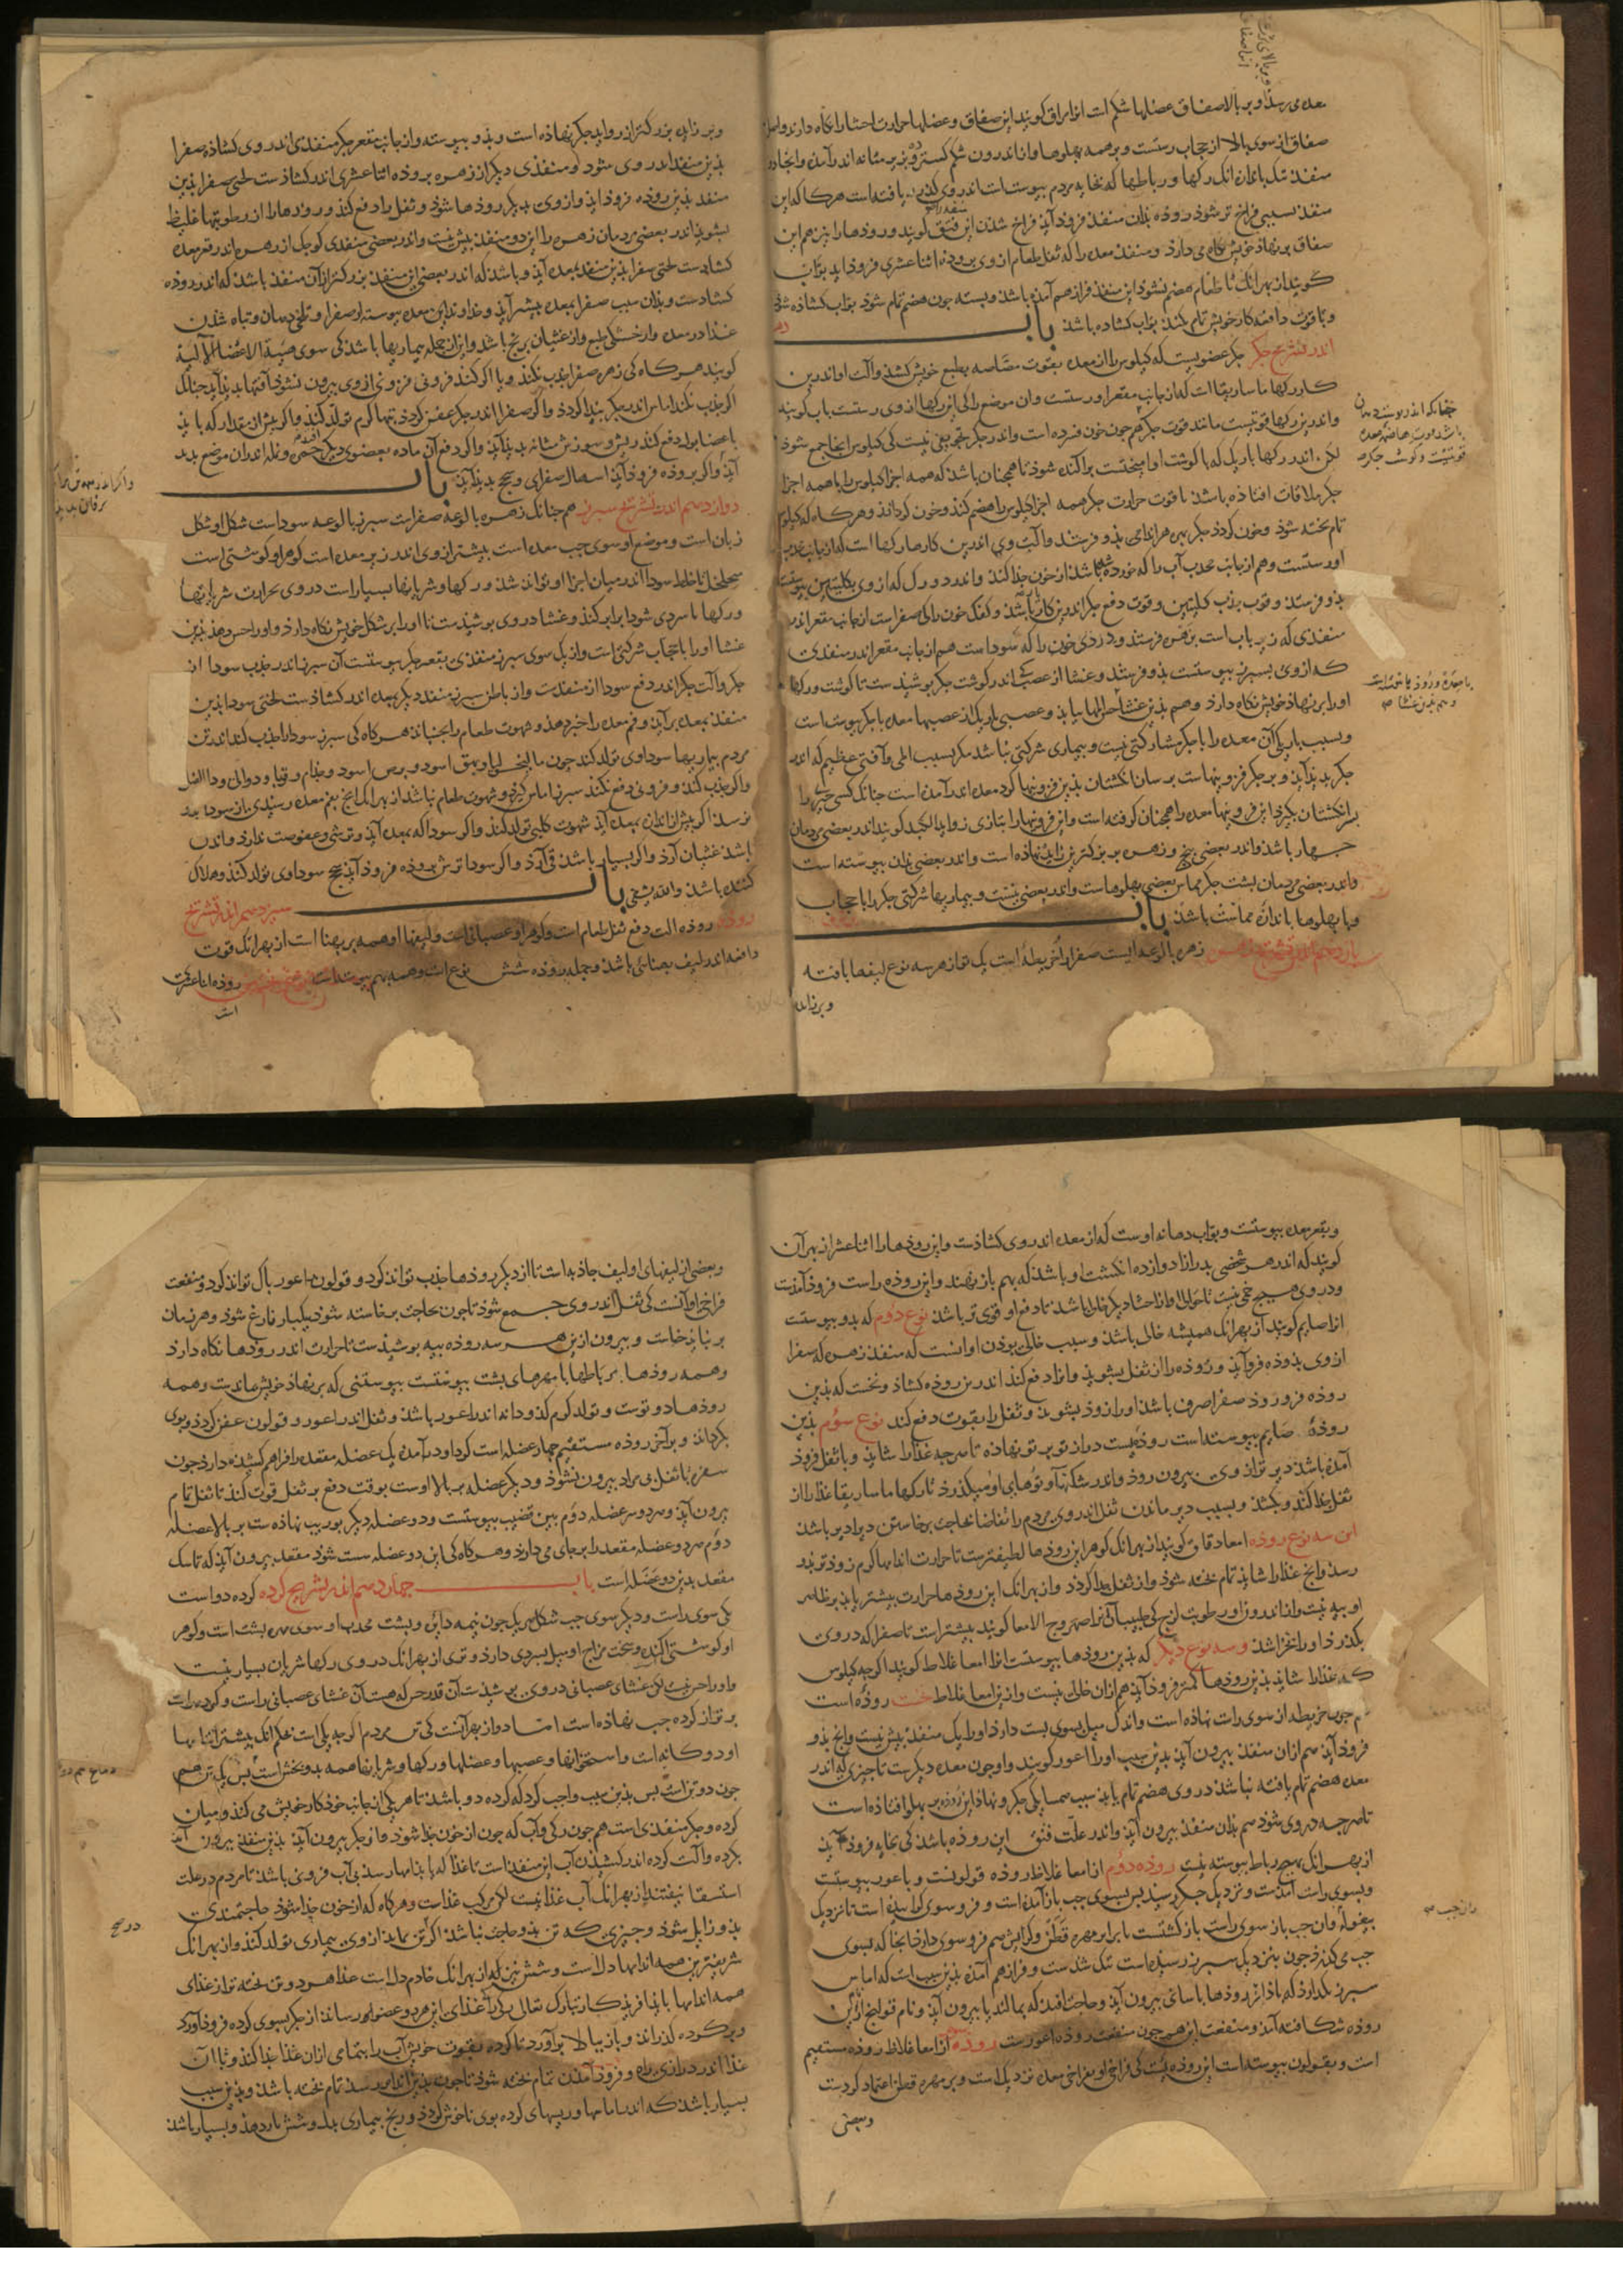 معده می رسد و بر بالا صفاق عضلهاء شکم است انرا مراق کویند این صفاق و عضلها حرارت احشا را نکاه دارند واصل
صفاق از سوی بالا از حجاب رستست و بر همه پهلوها و از اندرون شکم کسترده و بزیر مثانه اندر آمده و انجا دو
منفذ تنک بماند انک رکها و رباطها که بخایه مردم پیوستست اندر وی کذر یافته است هرکاه که این
منفذ بسببی فراخ تر شود روده بدان منفذ فرود آید فراخ شدن این منفذ را فتق کویند و رودها را نیز هم این
صفاق بر نهاد خویش نکاه می دارد و منفذ معده را که ثفل طعام از وی بروده اثنا عشری فروذ اید بواب
کویند از بهر انک تا طعام هضم نشود این منفذ فراز هم آمده باشد و بسته چون هضم تمام شود بواب کشاده شود
و تا قوت دافعه کار خویش تمام بکند بواب کشاده باشد باب
اندر تشریح جکر جکر عضویست که کیلوس را از معده بقوت مصّاصه بطبع خویش کشد و آلت او اندرین
کار رکها ماساریقا است که از جانب مقعر او رستست وان موضع را کی این رکها از وی رستست باب کویند
واندرین رکها قوتیست مانند قوت جکر و کوهر جکر هم چون خون فسرده است واندر جکر تجویفی نیست کی کیلوس انجا جمع شود
لکن اندر رکها باریک که با کوشت او امیختست پراکنده شود تا همچنان باشد که همه اجزا کیلوس را با همه اجزا
جکر ملاقات افتاده باشد تا قوت حرارت جکر همه اجزا کیلوس را هضم کند و خون کرداند و هرکاه که کیلوس
تمام پخته شود و خون کردد جکر بهر اندامی بدو فرستد و آلت وی اندرین کارها رکها است که از جانب محدب
او رستست و هم از جانب محدب آب را که خورده شده باشد از خون جدا کند و اندر دو رک که از وی بکلیتین پیوستست
بدو فرستد و قوت جذب کلیتین و قوت دفع جکر اندرین کار یار باشد و کفک خون را کی صفرا ست از جانب مقعر اندر
منفذی که زیر باب است بزهره فرستد و دردی خون را که سودا ست هم از جانب مقعر اندر منفذی
که از وی بسپرز پیوستست بدو فرستد و غشا از عصب کی اندر کوشت جکر پوشیدست تا کوشت و رکها
او را بر نهاد خویش نکاه دارد و هم بدین غشا حس المها بیابد و عصبی باریک از عصبها معده با جکر پیوست است
و بسبب باریکی آن معده را با جکر مشارکتی نیست و بیماری شرکتی نباشد مکر بسبب المی و آفتی عظیم که اندر
جکر پدید آید و بر جکر فزونیها ست بر سان انکشتان بدین فزونیها کرد معده اندر آمده است چنانک کسی چیزی را
بر انکشتان بکیرد این فزونیها معده را همچنان کرفته است و این فزونیها را بتازی زواید الکبد کویند اندر بعضی مردمان
چهار باشد واندر بعضی پنج و زهره بر بزرکترین زایده نهاده است واندر بعضی بدان پیوسته است
واندر بعضی مردمان پشت جکر مماس بعضی پهلوها ست واندر بعضی نیست و بیماریها شرکتی جکر را با حجاب
و با پهلوها باندازه مماست باشد باب
یازدهم اندر تشریح زهره زهره بالوعه ایست صفرا را خریطه است یک تو از هر سه نوع لیفها بافته
و بر زاید
و بر زاید بزرکتر از زواید جکر نهاده است و بدو پیوسته و از جانب مقعر جکر منفذی اندر وی کشاده صفرا
بذین منفذ اندر وی شود و منفذی دیکر از زهره بروده اثنا عشری اندر کشاذست لختی صفرا بذین
منفذ بذین روده فروذ اید و از وی بدیکر رودها شود و ثفل را دفع کند و رودها را از رطوبتها غلیظ
بشوید اندر بعضی مردمان زهره را این دو منفذ بیش نیست واندر بعضی منفذی کوچک از زهره اندر قعر معده
کشادست لختی صفرا بذین منفذ بمعده آید و باشد که اندر بعضی این منفذ بزرکتر از آن منفذ باشد که اندر روده
کشادست و بدان سبب صفرا بمعده بیشتر آید و خداوند این معده پیوسته از صفرا و تلخی دهان و تباه شدن
غذا در معده و از خشکی طبع و از غثیان برنج باشد و ازین جمله بیماریها باشد کی سوی هیئة الاعضا الآلیة
کویند هرکاه کی زهره صفرا جذب نکند و یا اکر کند فزونی از وی بیرون نشود آفتها پدید آید چنانک
اکر جذب نکند اماس اندر جکر پیدا کردد و اکر صفرا اندر جکر عفن کردد تبها کرم تولد کند و اکر بیش از مقدار که باید
باعضا بول دفع کند ریش و سوزش مثانه پدید آید و اکر دفع آن ماده بعضوی دیکر افتد حمره و نمله اندران موضع پدید
آید و اکر بروده فروذ آید اسهال صفرایی و سحج پدید آید باب
دوازدهم اندر تشریح سپرز هم چنانک زهره بالوعه صفرا ست سپرز بالوعه سودا ست شکل او شکل
زبان است و موضع او سوی چپ معده است بیشتر از وی اندر زیر معده است کوهر او کوشتی است
متخلخل تا خلط سودا اندر میان اجزا او تواند شد و رکها و شریانها بسیار است در وی حرارت شریانها
و رکها با سردی سودا برابر کند و غشا در وی پوشیدست تا او را بر شکل خویش نکاه دارد و او را حس دهد بذین
غشا او را با حجاب شرکتی است و از یک سوی سپرز منفذی بقعر جکر پیوستست آن سپرز اندر جذب سودا از
جکر و آلت جکر اندر دفع سودا از منفذست و از باطن سپرز منفذ دیکر بمعده اندر کشاذست لختی سودا بذین
منفذ بمعده برآید و فم معده را خبر دهد و شهوت طعام را بجنباند هرکاه کی سپرز سودا را جذب نکند اندر تن
مردم بیماریها سوداوی تولد کند چون مالیخولیا و بهق اسود و برص اسود و جذام و قوبا و دوالی و داء الفیل
و اکر جذب کند و فزونی دفع نکند سپرز اماس کیرد و شهوت طعام نباشد از بهر انک انچ بفم معده رسیدی از سودا بدو
نرسد و اکر بیش از اندازه بمعده آید شهوت کلبی تولد کند و اکر سودا که بمعده آید و ترشی و عفوصت ندارد واندک
باشد غثیان آرد و اکر بسیار باشد قی آرد و اکر سودا ترش بروده فروذ آید سحج سوداوی تولد کند و هلاک
کننده باشد والله یشفی باب سیزدهم اندر تشریح
روده روده الت دفع ثفل طعام است و کوهر او عصبانی است و لیفها او همه بر پهنا است از بهر انک قوت
دافعه اندر لیف پهنائی باشد و جمله روده شش نوع است و همه بهم پیوسته است نوع نخستین روده اثنا عشری
است
و بقعر معده پیوستست و بواب دهانه اوست که از معده اندر وی کشاذست و این روده را اثنا عشر از بهر آن
کویند که اندر هر شخصی بدرازا دوازده انکشت او باشد که بهم باز نهند و این روده راست فروذ آمذست
و در وی هیچ خمی نیست تا حوالی او از احشاء دیکر خالی باشد تا دفع او قوی تر باشد نوع دوم که بدو پیوستست
انرا صایم کویند از بهر انک همیشه خالی باشد و سبب خالی بودن او انست که منفذ زهره که صفرا
از وی بروده فروآید و روده را از ثفل بشوید و انرا دفع کند اندرین روده کشاذ و نخست که بذین
روده فروروذ صفرا صرف باشد او را زود بشوید و ثفل را بقوت دفع کند نوع سوم بذین
روده صایم پیوسته است روده ایست دراز تو بر تو نهاده تا هرچه غذا را شاید و با ثفل فروذ
آمده باشد دیر تر از وی بیرون رود واندر شکنها و توهای او میکذرد تا رکها ماساریقا غذا را از
ثفل جدا کند و بکشد و بسبب دیر ماندن ثفل اندر وی مردم را تقاضا حاجت برخاستن دیرادیر باشد
این سه نوع روده امعا دقاق کویند از بهر انک کوهر این رودها لطیفترست تا حرارت اندامها کرم زودتر بدو
رسد وانچ غذا را شاید تمام پخته شود و از ثفل جدا کردد و از بهر انک این رودها حرارت بیشتر یابد بر ظاهر
او پیه نیست وانا اندرون او رطوبت لزج کی طبیبان انرا صهروج الامعا کویند بیشتر است تا صفرا که در وی
بکذرد او را نخراشد و سه نوع دیکر که بذین رودها پیوستست انرا امعا غلاظ کویند اکرچه کیلوس
که غذا را شاید بذین رودها کمتر فروذ آید هم ازان خالی نیست و ازین امعا غلاظ نخست روده است
هم چون خریطه از سوی راست نهاده است واندکی میل بسوی پشت دارد او را یک منفذ بیش نیست وانچ بدو
فروذ آید هم ازان منفذ بیرون آید بدین سبب او را اعور کویند و او چون معده دیکرست تا چیزی که اندر
معده هضم تمام یافته نباشد در وی هضم تمام یابد سبب همسایکی جکر و نهاد این روده بر پهلو افتاذه است
تا هرچه در وی شود هم بدان منفذ بیرون آید واندر علّت فتق این روده باشد کی بخایه فروذ آید
از بهر انک بهیچ رباط پیوسته نیست روده دوم از امعا غلاظ روده قولونست و با عور پیوستست
و بسوی راست آمدست و نزدیک جکر رسیده پس بسوی چپ باز آمده است و فروسوی کراییده است تا نزدیک
بیغوله وان چپ باز سوی راست باز کشتست تا برابر مهره قطن و کرانش هم فروسوی دارد انجا که بسوی
چپ می کذرد چون بنزدیک سپرز رسیده است تنک شدست و فراز هم آمده بدین سبب است که اماس
سپرز نکذارد که باد ازین رودها باسانی بیرون آید و حاجت افتد که بمالند تا بیرون آید و نام قولنج از این
روده شکافته آمد و منفعت این هم چون منفعت روده اعورست روده سوم از امعا غلاظ روده مستقیم
است و بقولون پیوسته است این روده ایست کی فراخی او بفراخی معده نزدیک است و بر مهره قطن اعتماد کردست
و بعضی
و بعضی از لیفهای او لیف جاذبه است تا از دیکر رودها جذب تواند کرد و قولون و اعور بآن تواند کرد و منفعت
فراخی او آنست کی ثفل اندر وی جمع شود تا چون بحاجت برخاسته شود بیکبار فارغ شود و هر زمان
بر نباید خاست و بیرون ازین هر سه روده پیه پوشیدست تا حرارت اندر رودها نکاه دارد
و همه رودها بر رباطها با مهرهای پشت پیوستست پیوستنی که بر نهاد خویش بماندست و همه
رودها دو توست و تولد کرم کدودانه اندر اعور باشد و ثفل اندر اعور و قولون عفن کردد و بوی
بکرداند و بر آخر روده مستقیم چهار عضله است کرد او درآمده یک عضله مقعد را فراهم کشیده دارد چون
سفره تا ثفل بی مراد بیرون نشود و دیکر عضله بر بالا اوست بوقت دفع بر ثفل قوت کند تا ثفل تمام
بیرون آید و هر دو سر عضله دوم ببن قضیب پیوستست و دو عضله دیکر بوریب نهادست بر بالا عضله
دوم هر دو عضله مقعد را بر جای می دارند و هرکاه کی این دو عضله سست شود مقعد بیرون آید که تاسک
مقعد بدین دو عضله است باب چهاردهم اندر تشریح کرده کرده دواست
یکی سوی راست و دیکر سوی چپ شکل هر یک چون نیمه دایره و پشت محدب او سوی مهره پشت است و کوهر
او کوشتی آکنده و سخت مزاج او میل بسردی دارد و تری از بهر انک در وی رکها شریان بسیار نیست
و او را حس نیست لکن غشای عصبانی در وی پوشیدست آن قدر حس که هست آن غشای عصبانی راست و کرده راست
برتر از کرده چپ نهاده است اما دو از بهر آنست کی تن مردم اکرچه یکی است بحکم انک بیشتر اندامها
او دوکانه است و استخوانها و عصبها و عضلها و رکها و شریانها همه بدو بخش است پس یک تن هم
چون دو تن است پس بدین سبب واجب کرد که کرده دو باشد تا هر یکی از جانب خود کار خویش می کند و میان
کرده و جکر منفذی است هم چون رکی و آب که چون از خون جدا شود و از جکر بیرون آید بذین منفذ بیرون آید
بکرده و آلت کرده اندر کشیدن آب این منفذ است تا غذا که باندامها رسد بی آب فزونی باشد تا مردم در علت
استسقا نیفتند از بهر انک آب غذا نیست لکن مرکب غذاست و هرکاه که از خون جدا شود حاجتمندی
بدو زایل شود و چیزی که تن بدو حاجت نباشد اکر تن بماند از وی بیماری تولد کند و از بهر انک
شریفترین همه اندامها دلاست و شش نیز کی از بهر انک خادم دلاست غذا هر دو تن پخته تر از غذای
همه اندامها بایذ آفریدکار تبارک تعالی رکی را که غذای این هر دو عضو رساند از جکر بسوی کرده فروذ آورد
و بر کرده کذراند و باز ببالا برآورد تا کرده بقوت خویش آب را بتمامی ازان غذا جدا کند و تا آن
غذا اندر درازی راه و فروذ آمدن تمام پخته شود تا چون بدین اندام رسد تمام پخته باشد و بدین سبب
بسیار باشد که اندر اماسها و ریشهای کرده بوی ناخوش کردد و رنج بیماری بدل و شش باز دهد و بسیار باشد